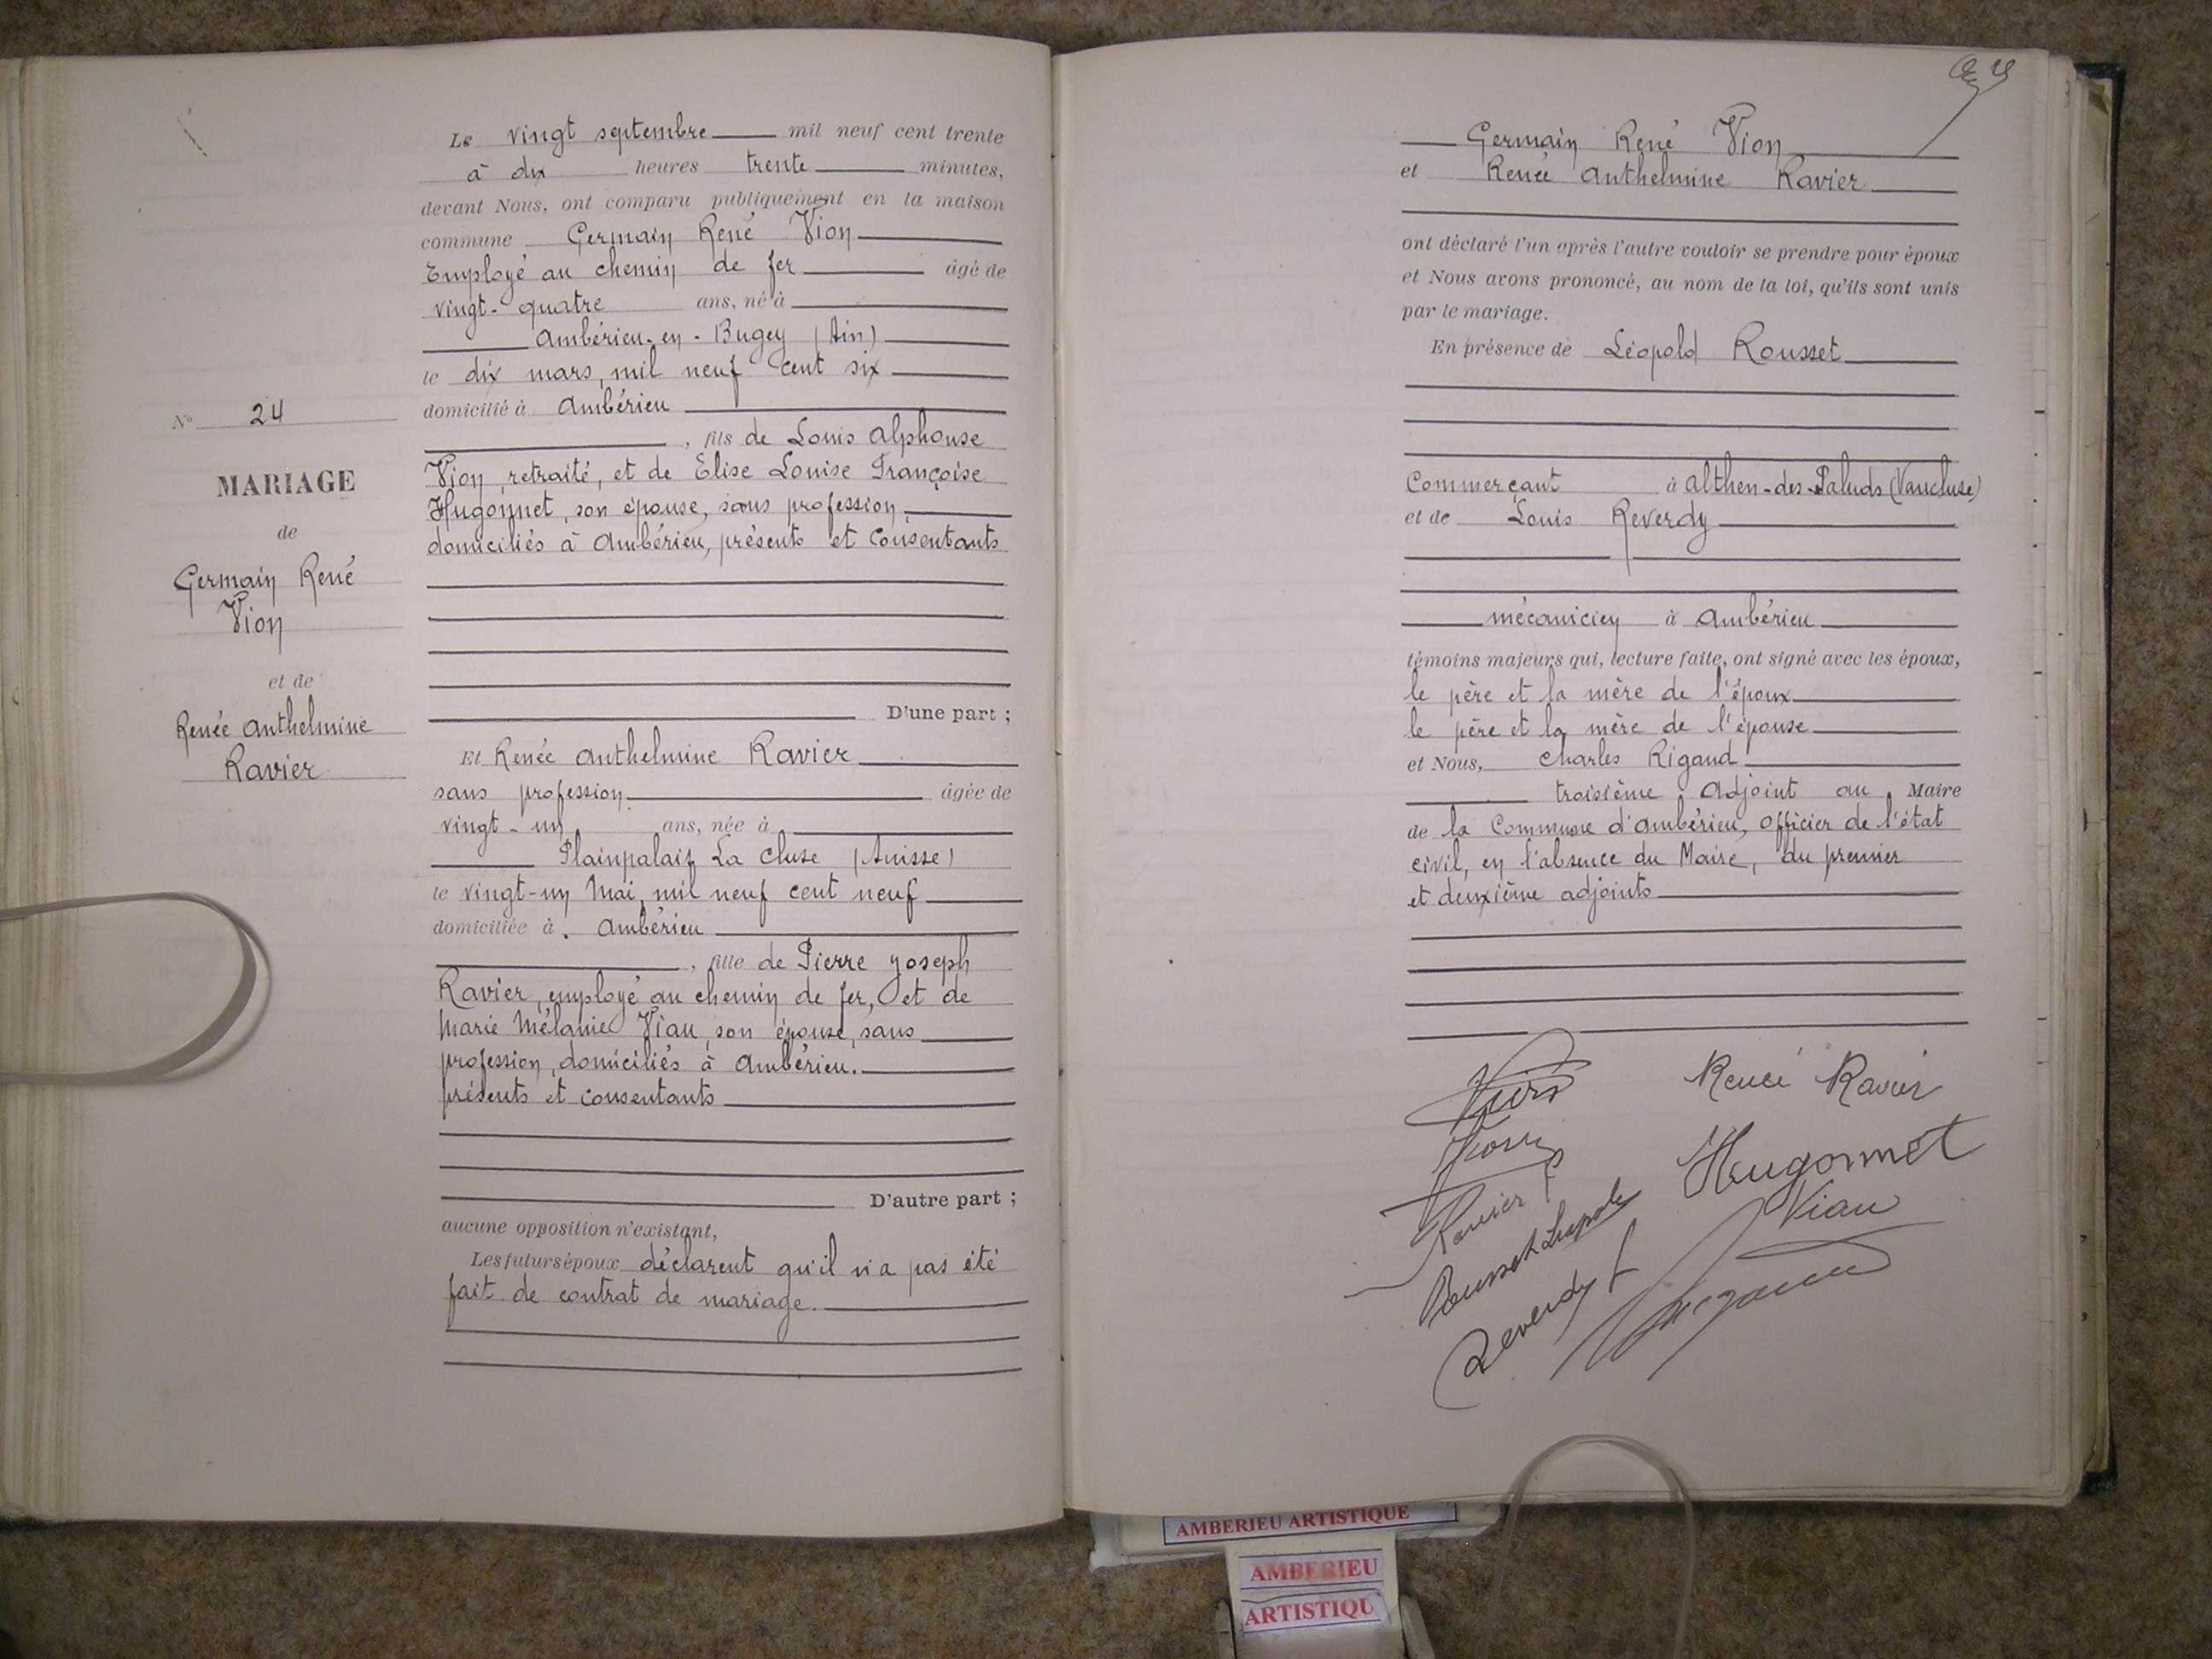 Le vingt septembre mil neuf cent trente
à dix heures trente minutes,
devant Nous, ont comparu publiquement en la maison
commune Germain René Vion
Employé au chemin de fer âgé de
vingt-quatre ans, né à
Ambérieu-en-Bugey (Ain)
le dix mars, mil neuf cent six
domicilié à Ambérieu
, fils de Louis Alphonse
Vion, retraité, et de Elise Louise Françoise
Hugonnet, son épouse, sans profession,
domiciliés à Ambérieu, présents et consentants
D'une part ;
Et Renée Anthelmine Ravier
sans profession âgée de
vingt-un ans, née à
Plainpalais La Cluse (Suisse)
le vingt-un Mai, mil neuf cent neuf
domiciliée à Ambérieu
, fille de Pierre Joseph
Ravier, employé au chemin de fer, et de
Marie Mélanie Viau, son épouse, sans
profession, domiciliés à Ambérieu.
présents et consentants
D'autre part ;
aucune opposition n'existant,
Les futurs époux déclarent qu'il n'a pas été
fait de contrat de mariage.
No 24
MARIAGE
de
Germain René
Vion
et de
Renée Anthelmine
Ravier
Germain René Vion
et Renée Anthelmine Ravier
ont déclaré l'un après l'autre vouloir se prendre pour époux
et Nous avons prononcé, au nom de la loi, qu'ils sont unis
par le mariage.
En présence de Léopold Rousset
Commerçant à Althen-des-Paluds (Vaucluse)
et de Louis Reverdy
mécanicien à Ambérieu
témoins majeurs qui, lecture faite, ont signé avec les époux,
le père et la mère de l'époux
le père et la mère de l'épouse
et Nous, Charles Rigaud
troisième Adjoint au Maire
de la Commune d'Ambérieu, Officier de l'état
civil, en l'absence du Maire, du premier
et deuxième adjoints
Renée Ravier
Vion
Hugonnet
Ravier
Viau
Rousset Léopold
Reverdy L
AMBERIEU ARTISTIQUE
AMBERIEU
ARTISTIQU